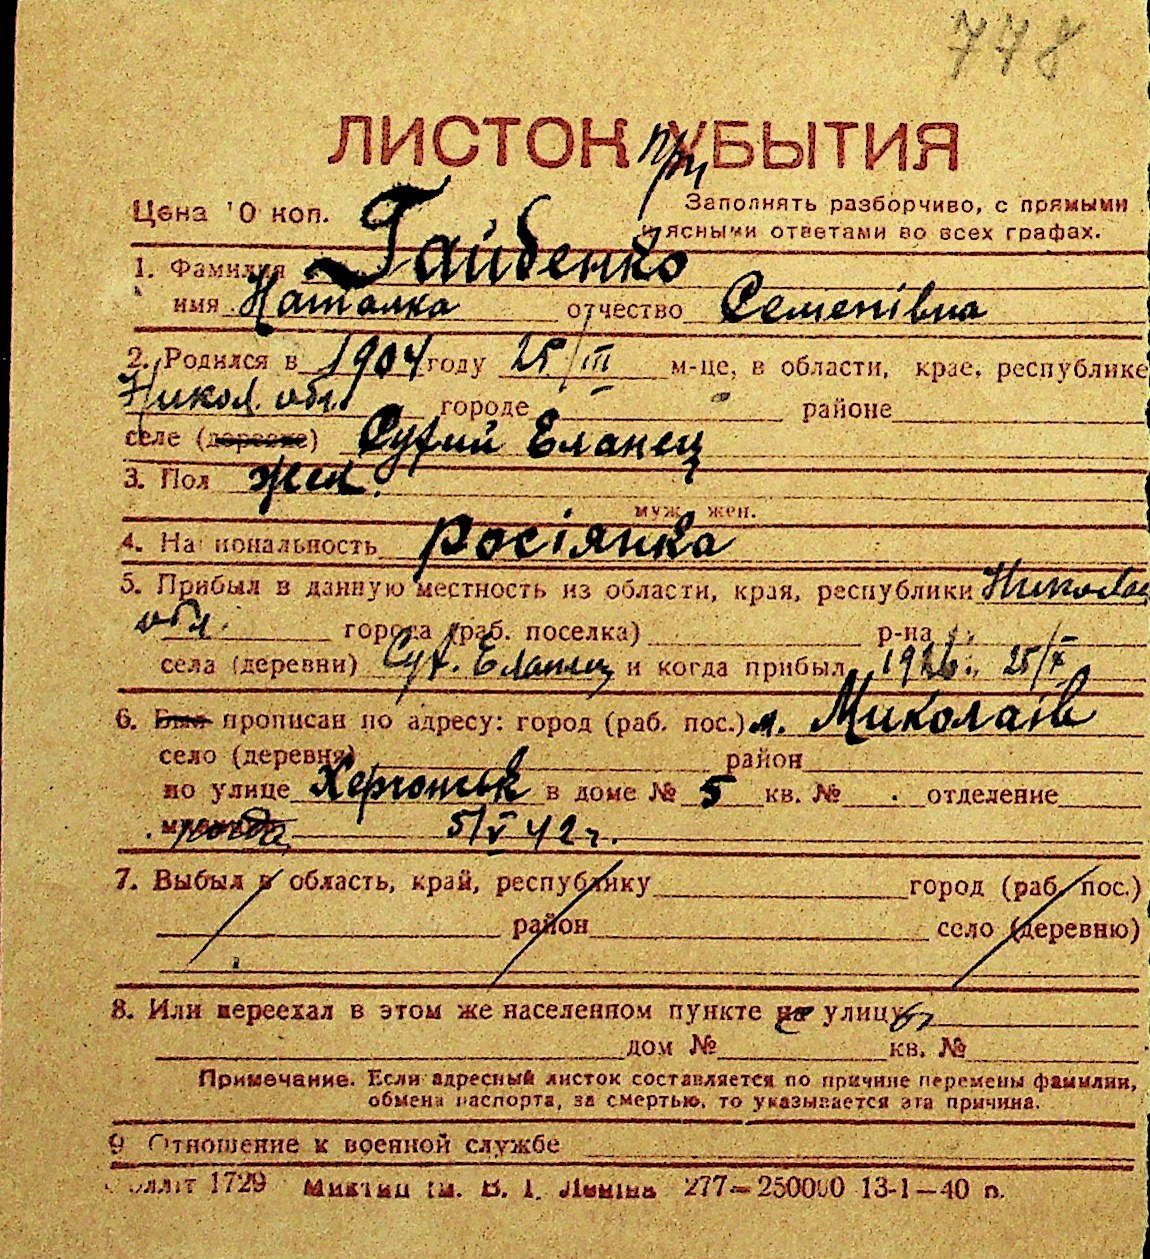 778
ЛИСТОК при УБЫТИЯ
Цена 10 коп.
Заполнять разборчиво, с прямыми
и ясными ответами во всех графах.
1. Фамилия Гайбенко
имя Наталка отчество Семенівна
2. Родился в 1904 году 25/III м-це, в области, крае, республике
Никол. обл. городе районе
селе (деревне) Сухий Еланец
3. Пол жен.
муж. жен.
4. Национальность росіянка
5. Прибыл в данную местность из области, края, республики Николаев
обл. города (раб. поселка) р-на
села (деревни) Сух. Еланец и когда прибыл 1926. 25/X
6. Был прописан по адресу: город (раб. пос.) м. Миколаїв
село (деревня) район
по улице Херсонськ в доме № 5 кв. № отделение
когда 5/V 42 г.
7. Выбыл в область, край, республику город (раб. пос.)
район село (деревню)
8. Или переехал в этом же населенном пункте на улицу
дом № кв. №
Примечание. Если адресный листок составляется по причине перемены фамилии,
обмена паспорта, за смертью, то указывается эта причина.
9 Отношение к военной службе
1729 В. І. Леніна 277—250000 13-1—40 п.